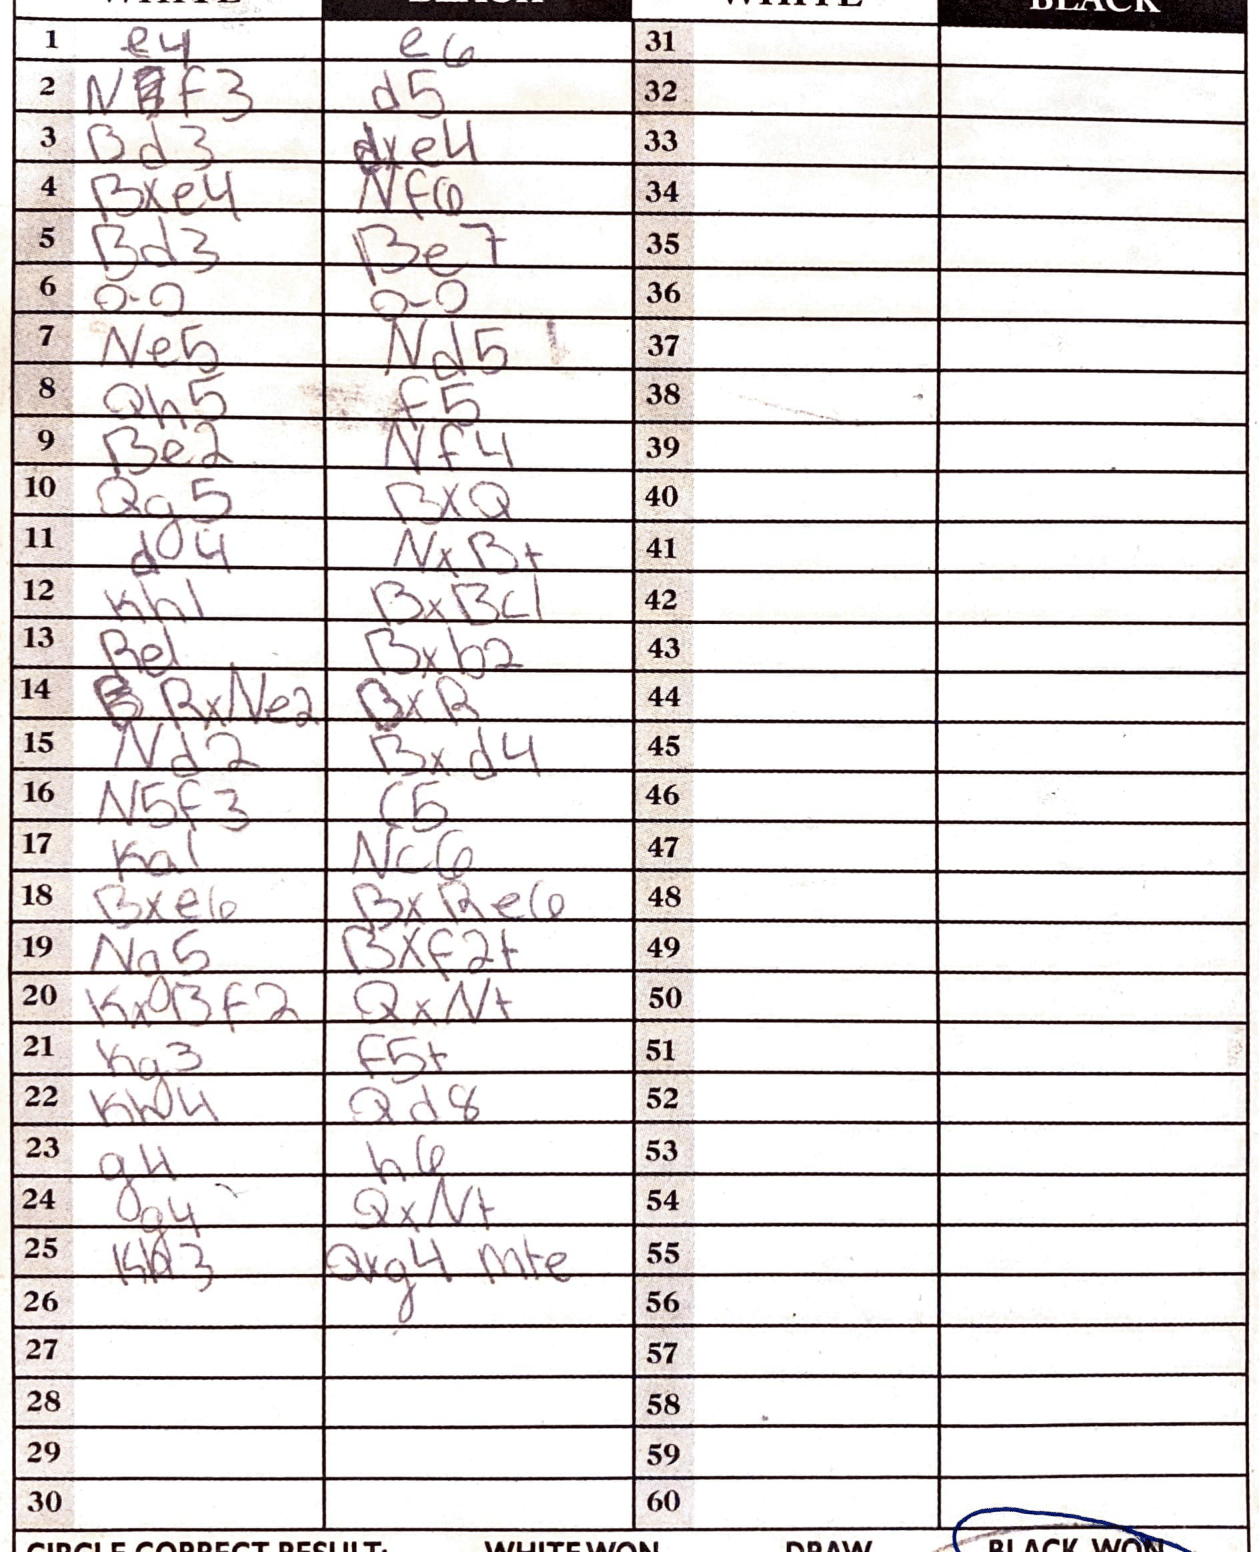 WHITE BLACK WHITE BLACK
1 e4 e6 31
2 Nf3 d5 32
3 Bd3 dxe4 33
4 Bxe4 Nf6 34
5 Bd3 Be7 35
6 0-0 0-0 36
7 Ne5 Nd5 37
8 Qh5 f5 38
9 Be2 Nf4 39
10 Qg5 BxQ 40
11 d4 NxB+ 41
12 Kh1 BxBc1 42
13 Re1 Bxb2 43
14 RxNe2 BxR 44
15 Nd2 Bxd4 45
16 N5f3 C5 46
17 Kg1 NC6 47
18 Bxe6 BxRe6 48
19 Ng5 BXf2+ 49
20 KxBf2 QxN+ 50
21 Kg3 F5+ 51
22 Kh4 Qd8 52
23 g4 h6 53
24 g4 QxN+ 54
25 Kh3 Qxg4 mte 55
26 56
27 57
28 58
29 59
30 60
CIRCLE CORRECT RESULT: WHITE WON DRAW BLACK WON